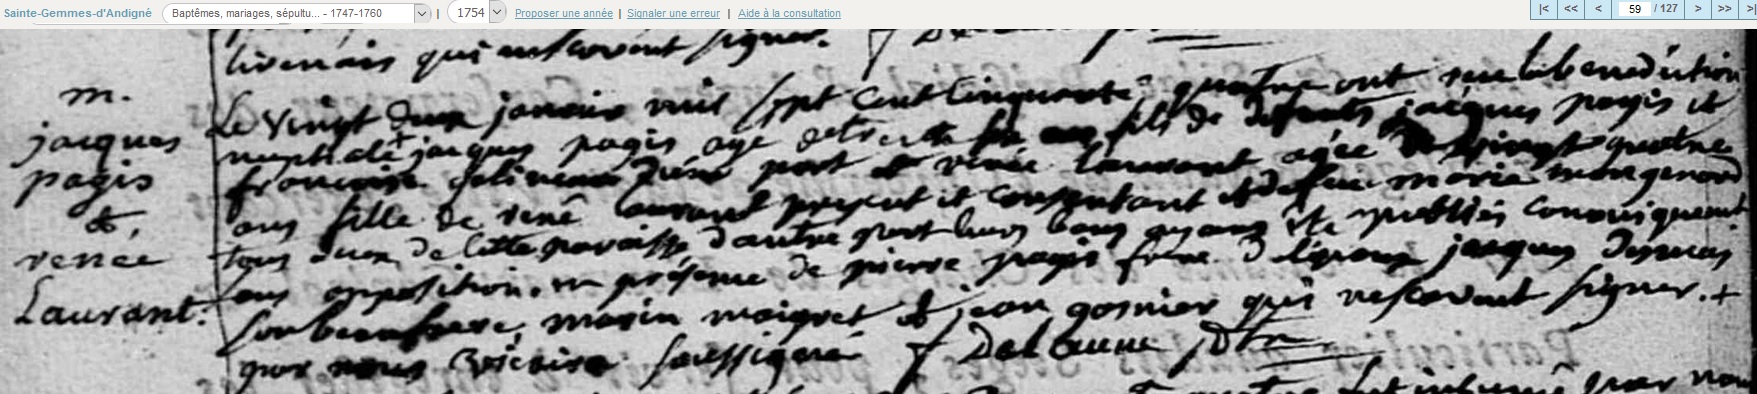 Sainte-Gemmes-d'Andigné Baptêmes, mariages, sépultu... - 1747-1760 | 1754 Proposer une année | Signaler une erreur | Aide à la consultation |< << < 59 / 127 > >> >|
qui ne scavent signer.
m.
jacques
pagis
&
renée
Laurant.
Le vingt deux janvier mil sept cent cinquante quatre ont receu la benediction
nuptiale jacques pagis age de trente ans fils de defunts jacques pagis et
francoise d'une part et renée laurant agée de vingt quatre
ans fille de rené laurant present et consentant et de feue marie
tous deux de cette paroisse d'autre part leurs bans ayans été publiés canoniquement
sans opposition. en présence de pierre pagis frere de l'epoux jacques
son beaufrere, marin maigret & jean gosnier qui ne scavent signer. +
par nous vicaire soussigné Delaune ptre
inhumé par nous